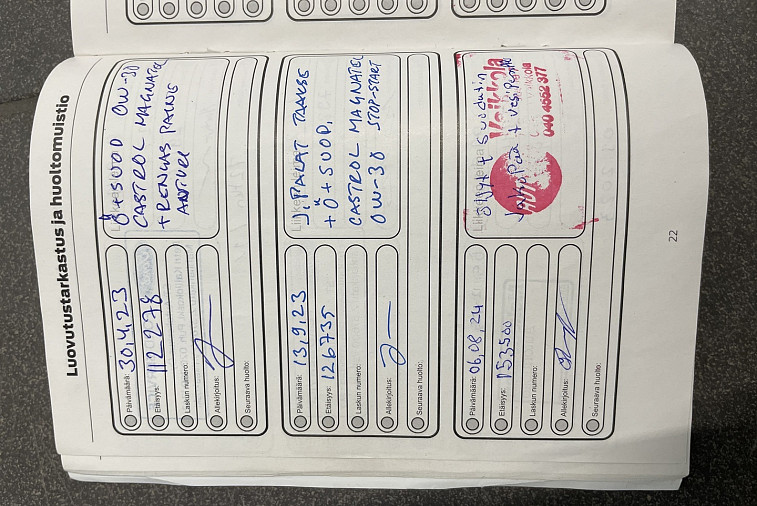 Luovutustarkastus ja huoltomuistio
Päivämäärä: 30.4.23
Etäisyys: 112278
Laskun numero:
Allekirjoitus:
Seuraava huolto:
Ö+SUOD 0W-30
CASTROL MAGNATEC
+ RENGAS PAINE
ANTURI
Päivämäärä: 13.9.23
Etäisyys: 126735
Laskun numero:
Allekirjoitus:
Seuraava huolto:
J.PALAT TAAKSE
+ Ö+SUOD.
CASTROL MAGNATEC
0W-30 STOP-START
Päivämäärä: 06.08.24
Etäisyys: 153500
Laskun numero:
Allekirjoitus:
Seuraava huolto:
öljyt + Suodatin
Jakopää + Vesipumppu
Veikkola
040 4552 377
22